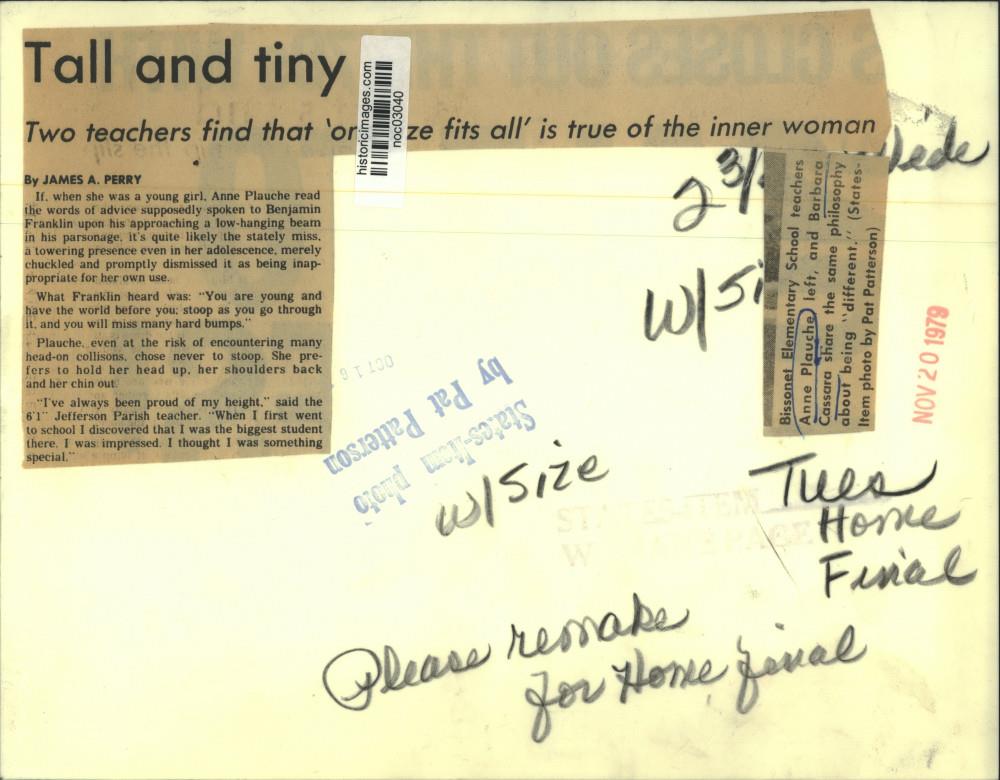 Tall and tiny
Two teachers find that 'or ze fits all' is true of the inner woman
historicimages.com
noc03040
By JAMES A. PERRY
If, when she was a young girl, Anne Plauche read
the words of advice supposedly spoken to Benjamin
Franklin upon his approaching a low-hanging beam
in his parsonage, it's quite likely the stately miss,
a towering presence even in her adolescence, merely
chuckled and promptly dismissed it as being inap-
propriate for her own use.
What Franklin heard was: "You are young and
have the world before you; stoop as you go through
it, and you will miss many hard bumps."
Plauche, even at the risk of encountering many
head-on collisons, chose never to stoop. She pre-
fers to hold her head up, her shoulders back
and her chin out.
"I've always been proud of my height," said the
6'1" Jefferson Parish teacher. "When I first went
to school I discovered that I was the biggest student
there. I was impressed. I thought I was something
special."
2 3/
W/Si
Bissonet Elementary School teachers
Anne Plauche left, and Barbara
Cassara share the same philosophy
about being "different." (States-
Item photo by Pat Patterson)
NOV 20 1979
OCT 16
States-Item photo
by Pat Patterson
w/Size
Tues
Home
Final
Please remake
for Home final